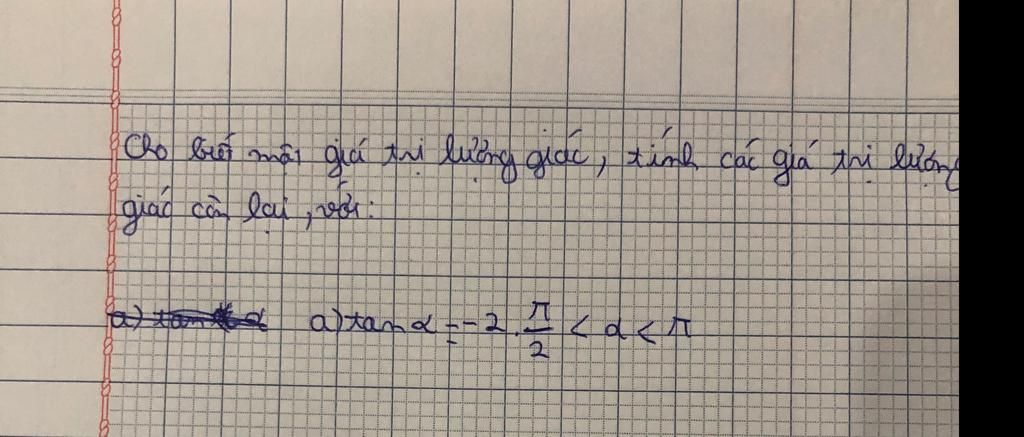 Cho biết một giá trị lượng giác, tính các giá trị lượng
giác còn lại, với:
a) tan α a) tan α = -2. π/2 < α < π